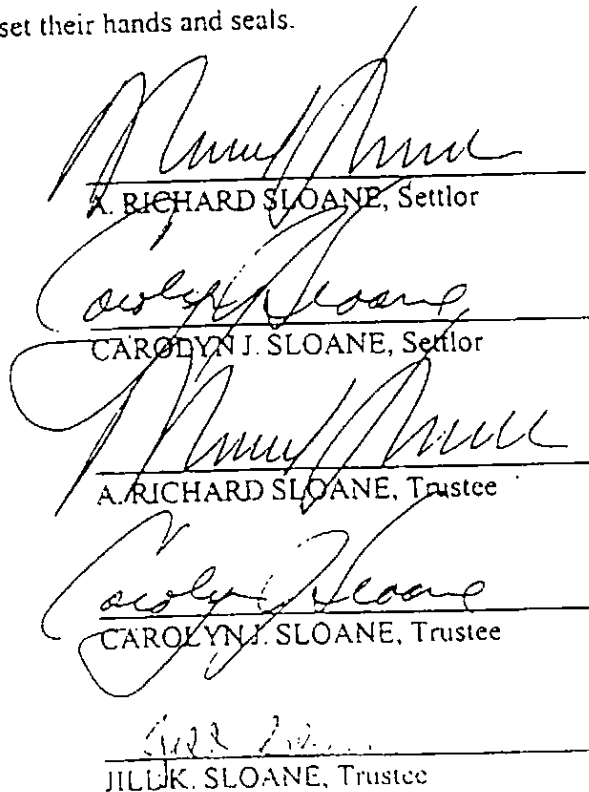 set their hands and seals.
A. RICHARD SLOANE, Settlor
Carolyn J. Sloane
CAROLYN J. SLOANE, Settlor
A. RICHARD SLOANE, Trustee
Carolyn J. Sloane
CAROLYN J. SLOANE, Trustee
JILL K. SLOANE, Trustee